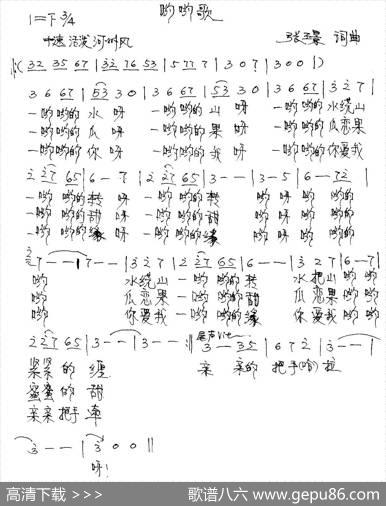 哟哟歌
1=下 3/4
中速 活泼 河州风
词曲
(32 35 67 | 32 76 53 | 5 77 7 | 3 0 7 | 3 0 0 |)
3 6 67 | 53 30 | 3 6 67 | 53 30 | 3 6 67 | 3 2 7 |
一哟哟的 水 呀 一哟哟的 山 呀 一哟哟的水绕山
一哟哟的 瓜 呀 一哟哟的 果 呀 一哟哟的瓜恋果
一哟哟的 你 呀 一哟哟的 我 呀 一哟哟的你爱我
2 27 65 | 6 - 7 | 2 27 65 | 3 - - | 3 - 5 | 6 - 72 |
一哟 哟的 转 呀 一哟 哟的转 呀 呀 哟 哟的
一哟 哟的 甜 呀 一哟 哟的甜 呀 呀 哟 哟的
一哟 哟的 缘 呀 一哟 哟的缘 呀 呀 哟 哟的
7 - - | 7 - - | 3 2 7 | 2 27 65 | 6 - - | 3 2 7 | 6 - 7 |
哟 水绕山 一哟 哟的转 水把山 哟 哟
哟 瓜恋果 一哟 哟的甜 瓜恋果 哟 哟
哟 你爱我 一哟 哟的缘 你爱我 哟 哟
2 27 65 | 3 - - | 3 - - :|| 尾声 3 - 35 | 6 7 2 | 3 - - |
紧紧 的 缠 亲 亲的 把手(哈) 拉
蜜蜜 的 甜
亲亲 把手 牵
3 - - | 3 0 0 ||
呀!
高清下载 >>>
歌谱八六 www.gepu86.com